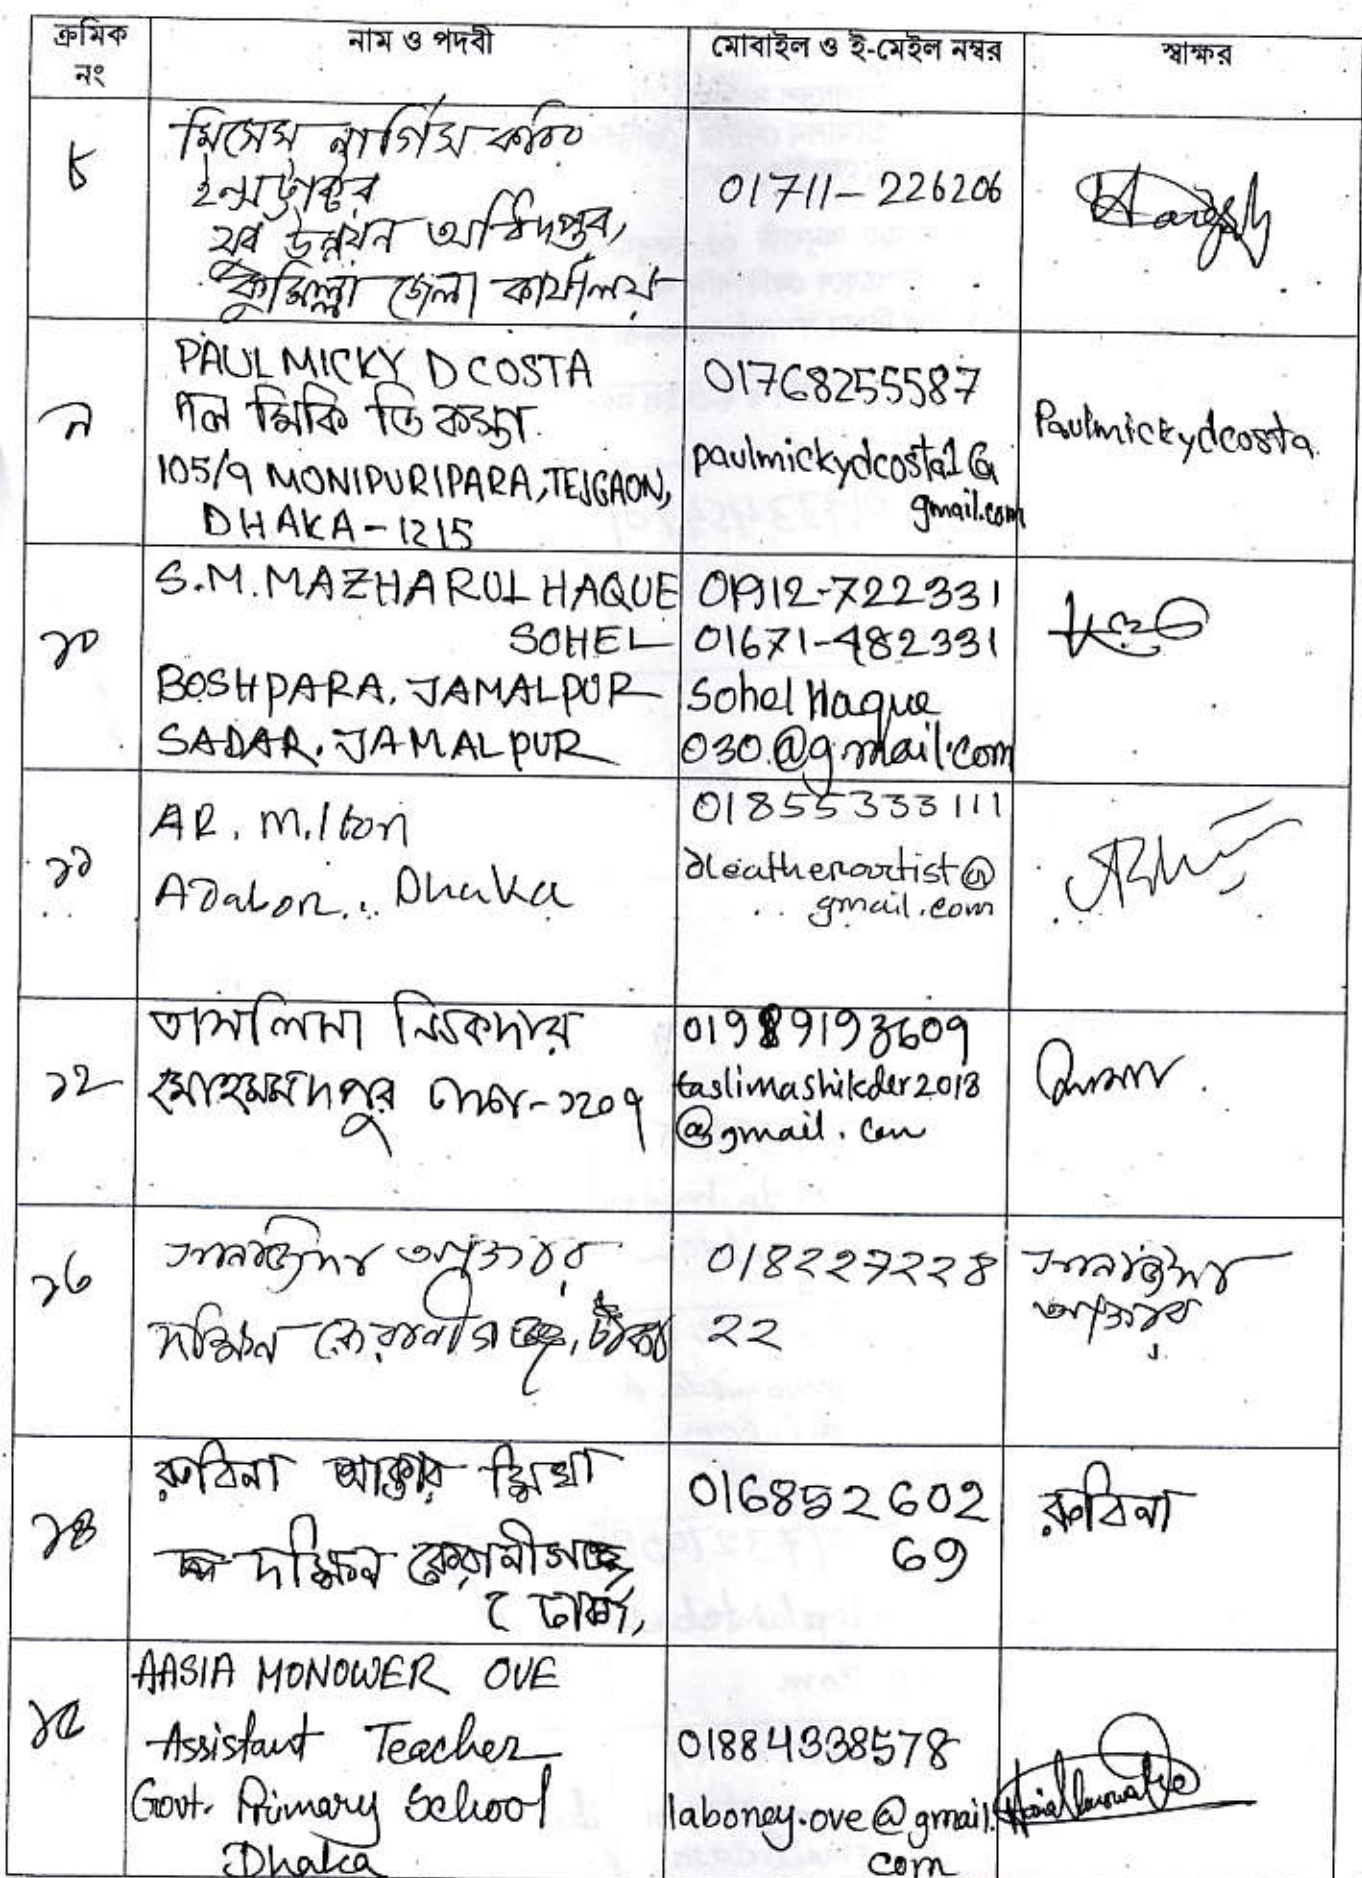 ক্রমিক নং
নাম ও পদবী
মোবাইল ও ই-মেইল নম্বর
স্বাক্ষর
৮
মিসেস নার্গিস কবির
ইন্সট্রাক্টর
যুব উন্নয়ন অধিদপ্তর,
কুমিল্লা জেলা কার্যালয়
01711-226206
৯
PAUL MICKY D COSTA
পল মিকি ডি কস্তা
105/9 MONIPURIPARA, TEJGAON,
DHAKA-1215
01768255587
paulmickydcosta1@
gmail.com
Paulmickydcosta
১০
S.M. MAZHARUL HAQUE
SOHEL
BOSHPARA, JAMALPUR
SADAR, JAMALPUR
01912-722331
01671-482331
Sohel Haque
030@gmail.com
১১
AR. Milton
Adabor, Dhaka
01855333111
dleatherartist@
gmail.com
১২
তাসলিমা শিকদার
মোহাম্মদপুর ঢাকা-১২০৭
01989193609
taslimashikder2018
@gmail.com
১৩
আক্তার
দক্ষিন কেরানীগঞ্জ, ঢাকা
018227228
22
আক্তার
১৪
রুবিনা আক্তার
দক্ষিন কেরানীগঞ্জ
ঢাকা,
016852602
69
রুবিনা
১৫
AASIA MONOWER OVE
Assistant Teacher
Govt. Primary School
Dhaka
01884338578
laboney.ove@gmail.
com